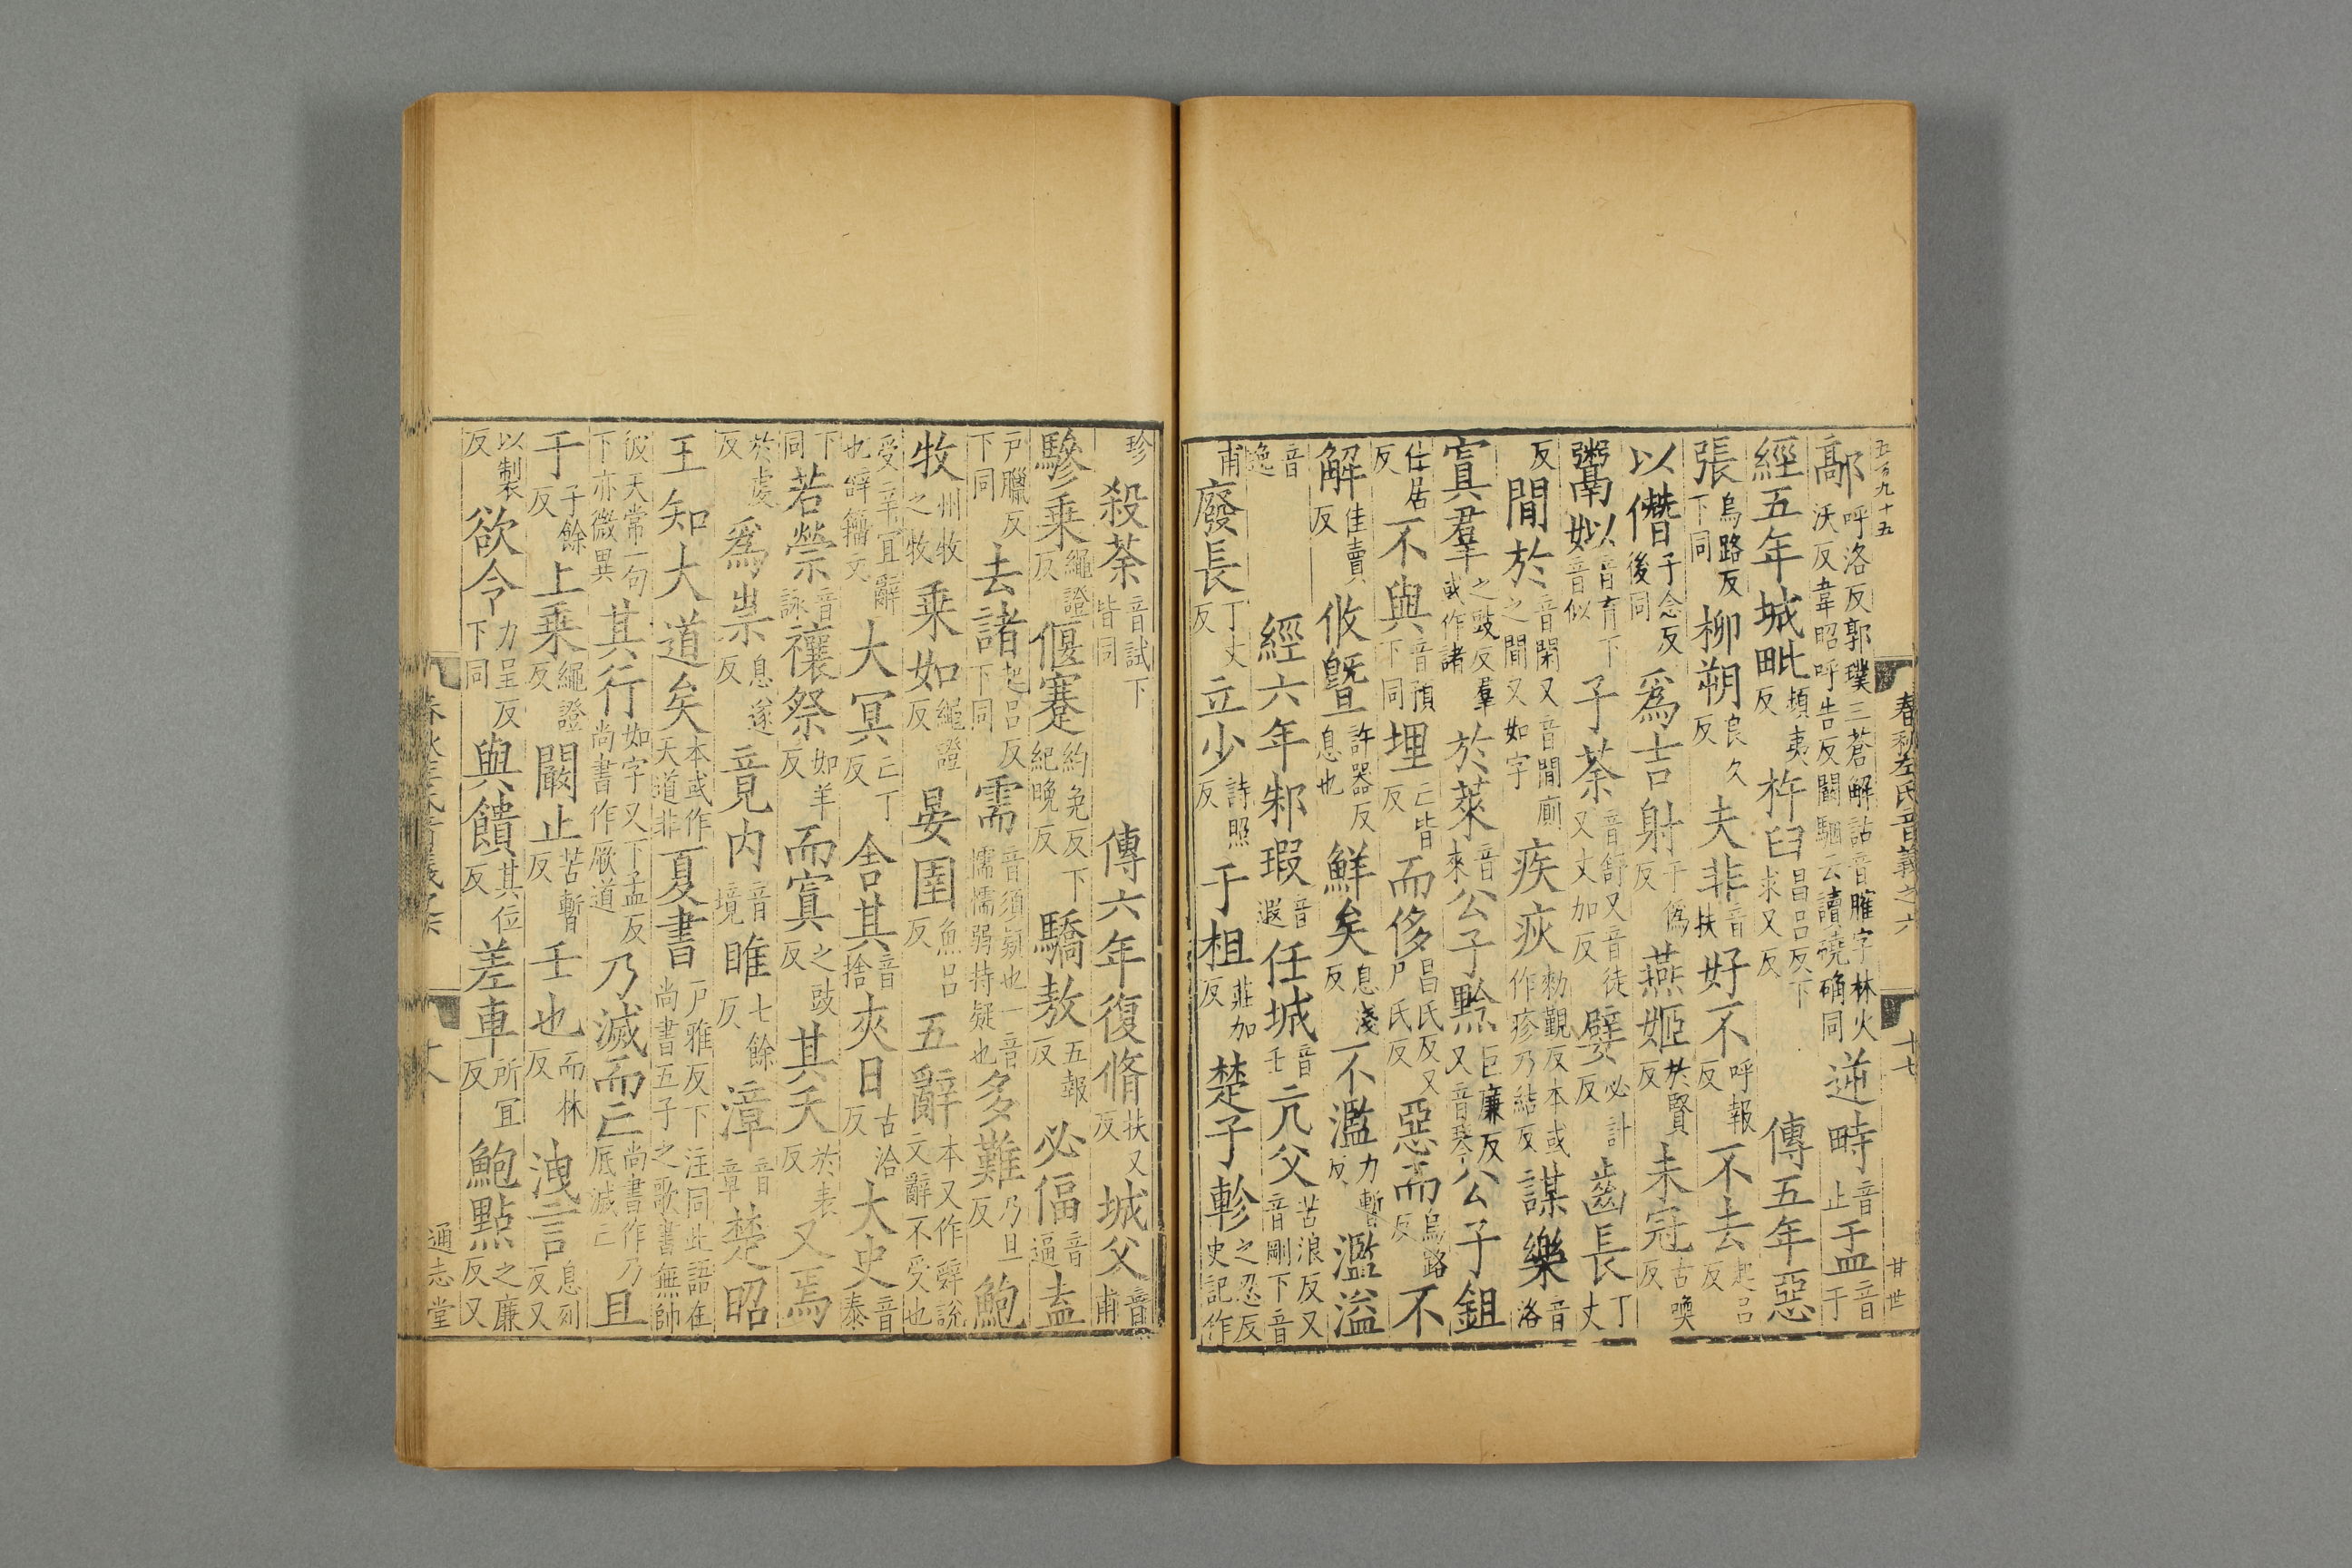 五百九十五
春秋左氏音義之六
十七
甘世
鄗呼洛反郭璞三蒼解詁音臛字林火沃反韋昭呼告反闞駰云讀磽确同逆畤音止盂音于
經五年城毗頻夷反杵臼昌呂反下求又反傳五年惡
張烏路反下同柳朔良久反夫非音扶好不呼報反不去起呂反
以僭子念反後同爲吉射于僞反燕姬於賢反未冠古喚反
鬻姒音育下音似子荼音舒又音徒又丈加反嬖必計反齒長丁丈
反閒於音閑又音閒廁之閒又如字疾疢勑覲反本或作疹乃結反謀樂音洛
寘羣之豉反羣或作諸於萊音來公子黔巨廉反又音琴公子鉏
仕居反不與音預下同埋亡皆反而侈昌氏反又尸氏反惡而烏路反不
解佳賣反攸墍許器反息也鮮矣息淺反不濫力暫反濫溢
音逸經六年邾瑕音遐任城音壬亢父苦浪反又音剛下音
甫廢長丁丈反立少詩照反于柤莊加反楚子軫之忍反史記作
珍殺荼音試下皆同傳六年復脩扶又反城父音甫
驂乗繩證反偃蹇約免反下紀晚反驕敖五報反必偪音逼盍
戶臘反下同去諸起呂反下同需音須疑也一音懦懦弱持疑也多難乃旦反鮑
牧州牧之牧乗如繩證反晏圉魚呂反五辭本又作辤說文辭不受也
受辛宜辭也辭籀文大冥亡丁反舍其音捨夾日古洽反大史音泰
下同若禜音詠禳祭如羊反而寘之豉反其夭於表反又焉
於虔反爲祟息遂反竟內音境睢七餘反漳音章楚昭
王知大道矣本或作天道非夏書戶雅反下注同此語在尚書五子之歌書無帥
彼天常一句下亦微異其行如字又下孟反尚書作厥道乃滅而亡尚書作乃厎滅亡且
于子餘反上乗繩證反闞止苦暫反壬也而林反洩言息列反又
以製反欲令力呈反下同與饋其位反差車所宜反鮑點之廉反又
通志堂